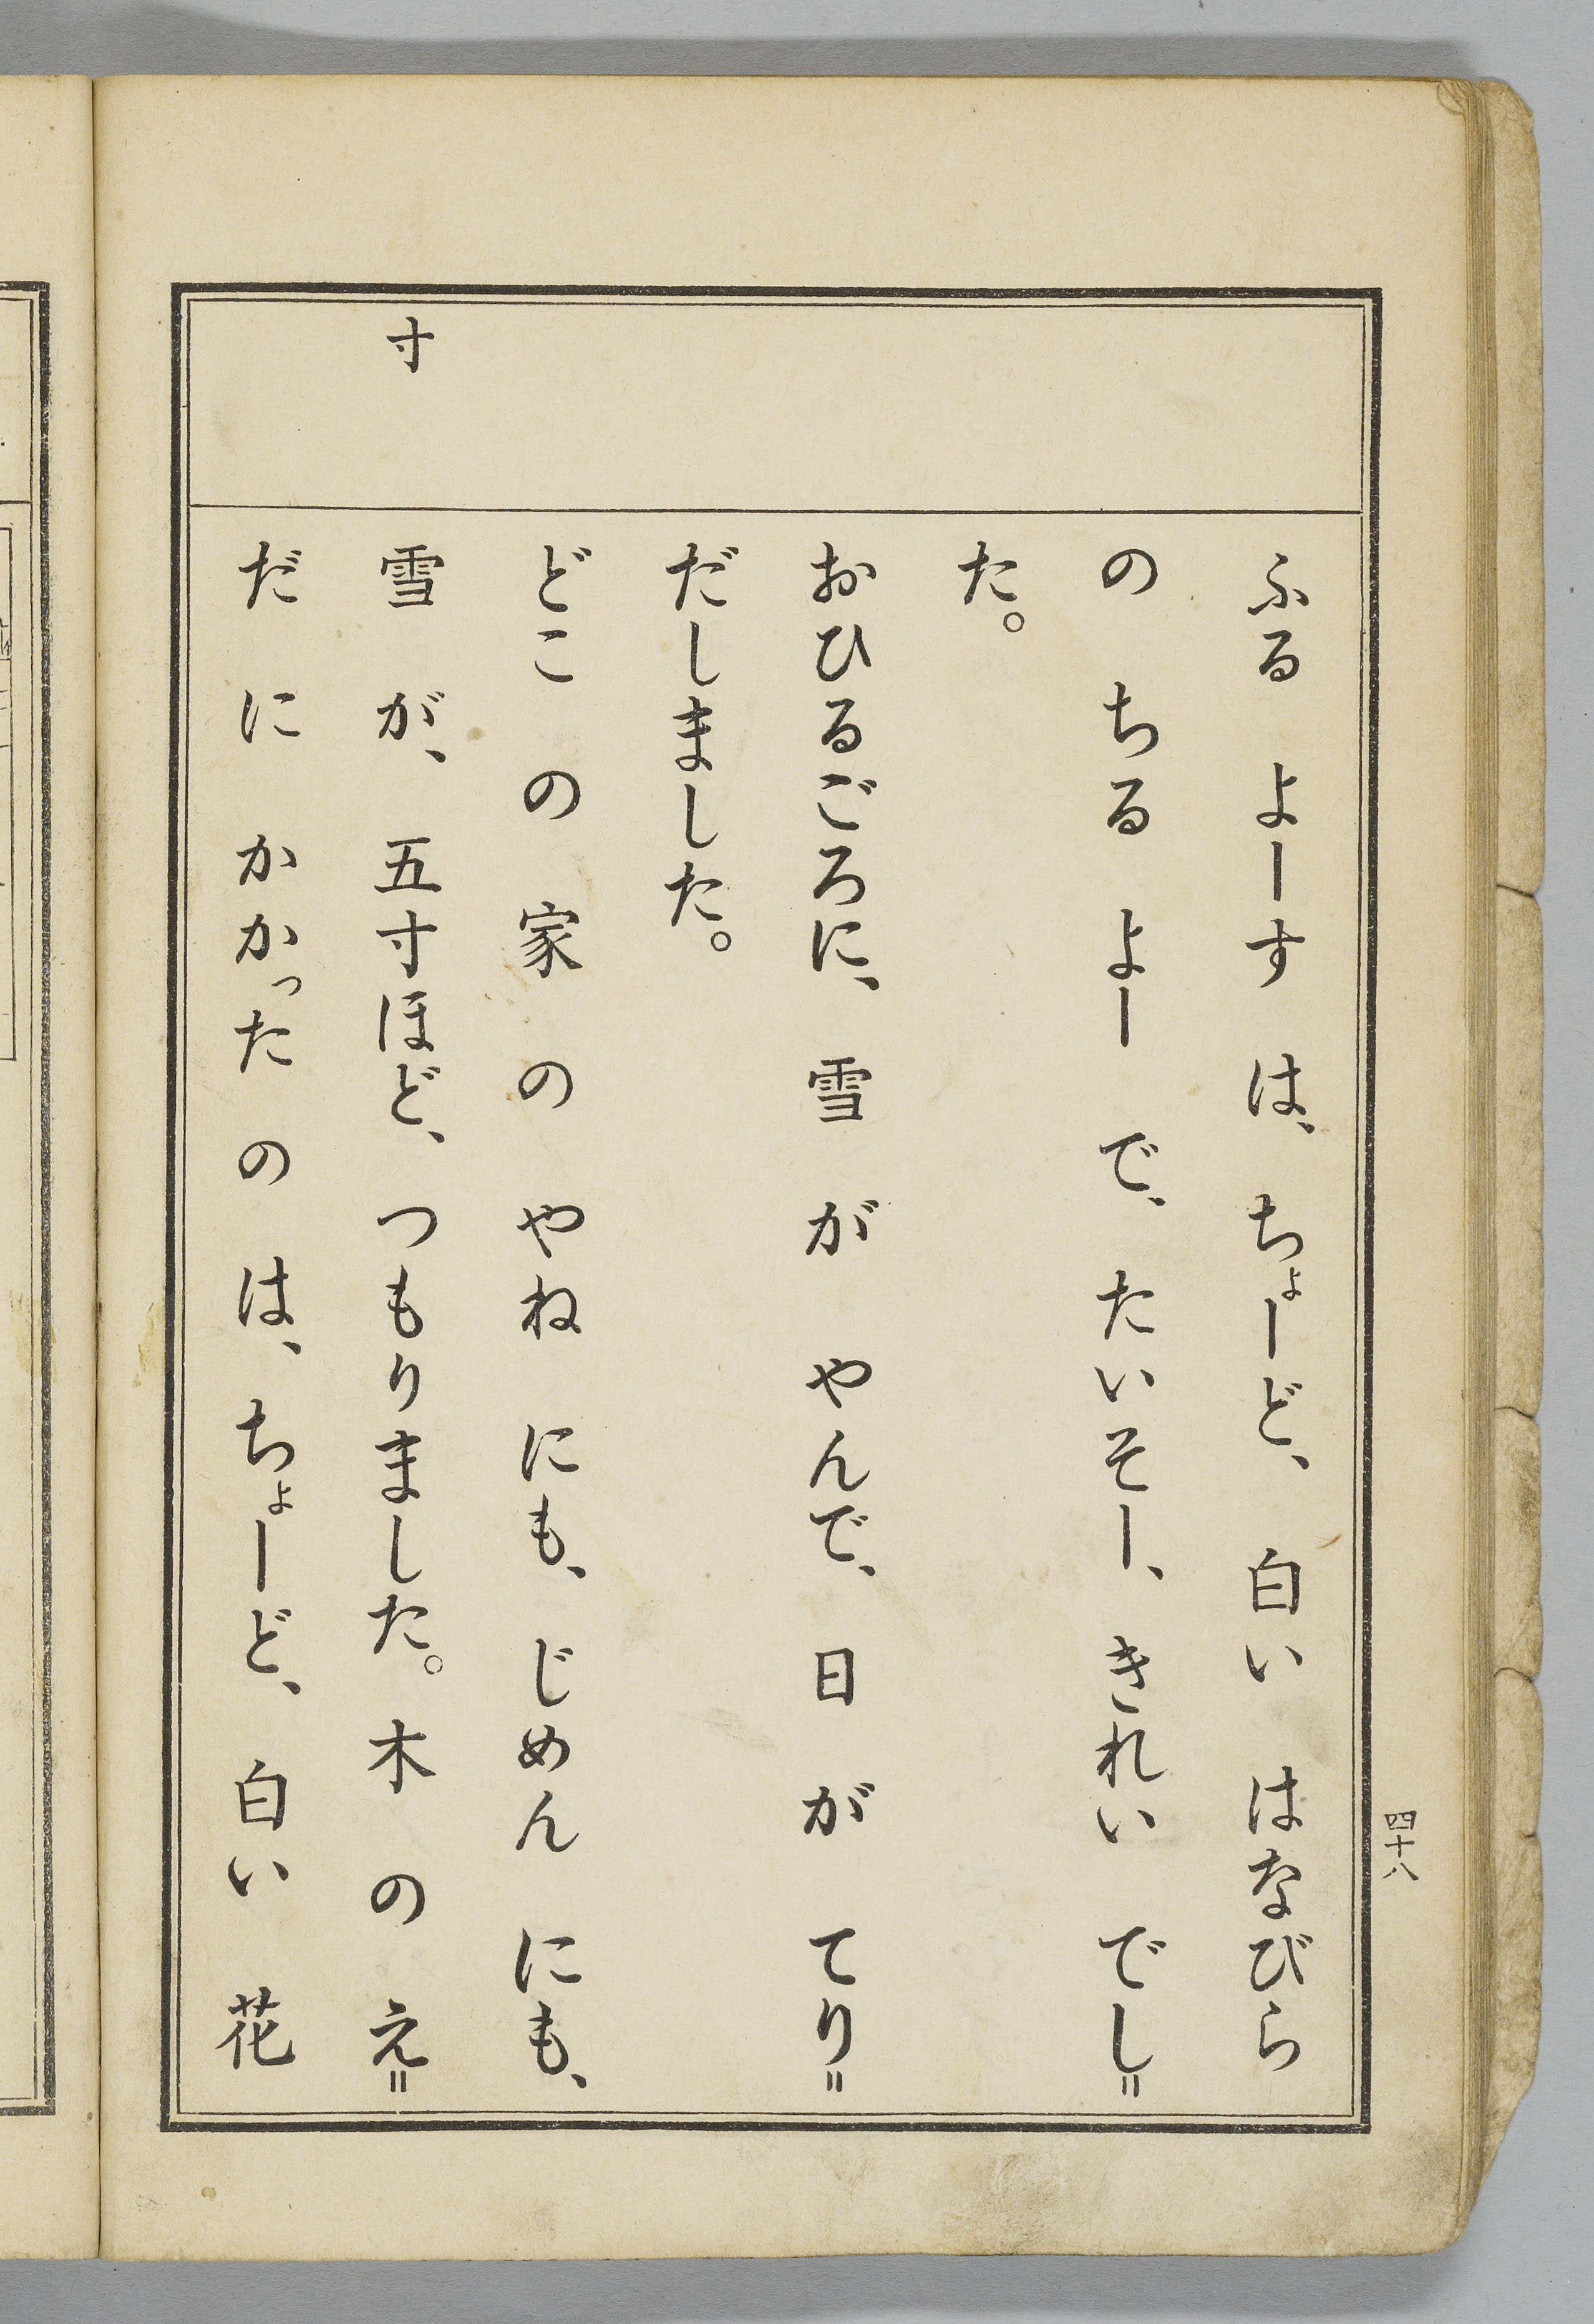 四十八
ふる よーす は、ちょーど、白い はなびら
の ちる よー で、たいそー、きれい でし=
た。
おひるごろに、雪 が やんで、日 が てり=
だしました。
どこ の 家 の やね にも、じめん にも、
寸
雪 が、五寸ほど、つもりました。木 の え=
だ に かかった の は、ちょーど、白い 花